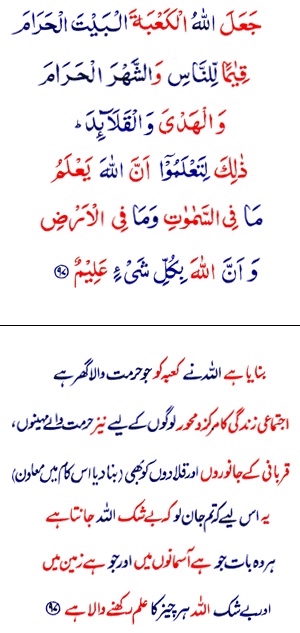 جَعَلَ اللّٰهُ الْكَعْبَةَ الْبَيْتَ الْحَرَامَ
قِيٰمًا لِّلنَّاسِ وَالشَّهْرَ الْحَرَامَ
وَالْهَدْىَ وَالْقَلَآئِدَ ؕ
ذٰلِكَ لِتَعْلَمُوْۤا اَنَّ اللّٰهَ يَعْلَمُ
مَا فِى السَّمٰوٰتِ وَمَا فِى الْاَرْضِ
وَ اَنَّ اللّٰهَ بِكُلِّ شَىْءٍ عَلِيْمٌ ﴿۹۷﴾
بنایا ہے اللہ نے کعبہ کو جو حرمت والا گھر ہے
اجتماعی زندگی کا مرکز و محور لوگوں کے لیے نیز حرمت والے مہینوں،
قربانی کے جانوروں اور قلادوں کو بھی (بنا دیا اس کام میں معاون)
یہ اس لیے کہ تم جان لو کہ بے شک اللہ جانتا ہے
ہر وہ بات جو ہے آسمانوں میں اور جو ہے زمین میں
اور بے شک اللہ ہر چیز کا علم رکھنے والا ہے ﴿۹۷﴾